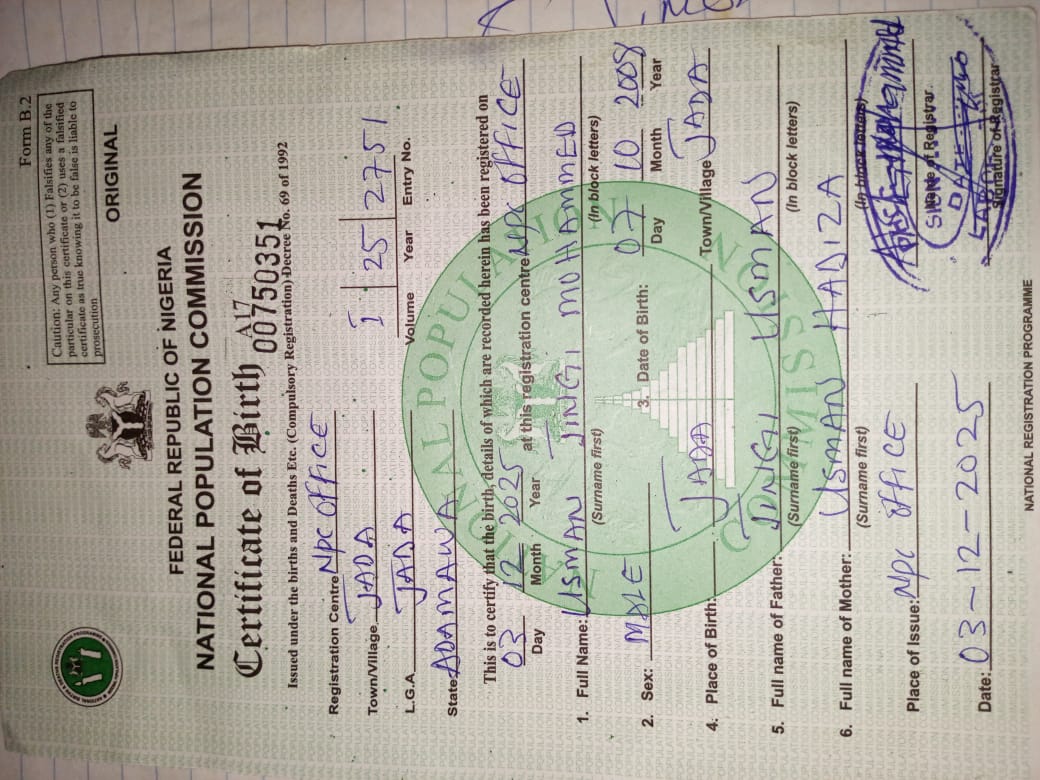 Form B.2
Caution: Any person who (1) Falsifies any of the
particular on this certificate or (2) uses a falsified
certificate as true knowing it to be false is liable to
prosecution
ORIGINAL
FEDERAL REPUBLIC OF NIGERIA
NATIONAL POPULATION COMMISSION
Certificate of Birth A17 00750351
Issued under the births and Deaths Etc. (Compulsory Registration) Decree No. 69 of 1992
Registration Centre NPC OFFICE
I 25 2751
Volume Year Entry No.
Town/Village JADA
L.G.A JADA
State: ADAMAWA
This is to certify that the birth, details of which are recorded herein has been registered on
03 12 2025 at this registration centre NPC OFFICE
Day Month Year
1. Full Name: USMAN JINGI MUHAMMED
(Surname first) (In block letters)
2. Sex: MALE 3. Date of Birth: 07 10 2008
Day Month Year
4. Place of Birth: JADA Town/Village JADA
5. Full name of Father: JINGI USMAN
(Surname first) (In block letters)
6. Full name of Mother: USMAN HADIZA
(Surname first) (In block letters)
Place of Issue: NPC OFFICE
Name of Registrar
SIGN
DATE
Date: 03-12-2025
Signature of Registrar
NATIONAL REGISTRATION PROGRAMME
NATIONAL POPULATION COMMISSION